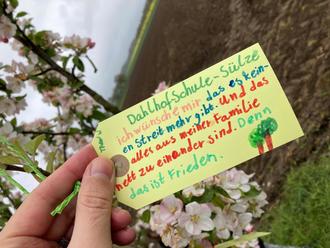 Dahlhofschule-Sülze
ich wünsche mir das es kein-
en Streit mehr gibt. Und das
alles aus meiner Familie
nett zu einander sind. Denn
das ist Frieden.